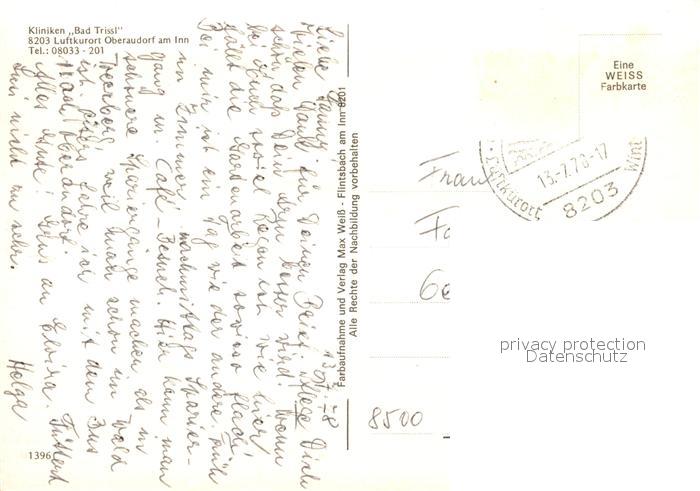 Kliniken „Bad Trissl"
8203 Luftkurort Oberaudorf am Inn
Tel.: 08033 - 201
13.7.78
Liebe Fanny!
Vielen Dank für Deinen Brief. Pflege Dich
schön, daß Dein Arm besser wird. Wenn
bei Euch soviel Regen ist wie hier,
fällt die Gartenarbeit sowieso flach.
Bei mir ist ein Tag wie der andere. Früh
im Zimmer, nachmittags Spazier-
gang m. Café-Besuch. Hier kann man
schönere Spaziergänge machen als in
weil man schon im Wald
ist. Öfters fahre ich mit dem Bus
nach Oberaudorf.
Alles Gute! Gruß an Elvira.
nicht zu sehr.
Helga
1396
Farbaufnahme und Verlag Max Weiß - Flintsbach am Inn 8201
Alle Rechte der Nachbildung vorbehalten
Eine
WEISS
Farbkarte
Luftkurort
13.-7.78-17
8203
Frau
Fa
Ge
8500
privacy protection
Datenschutz